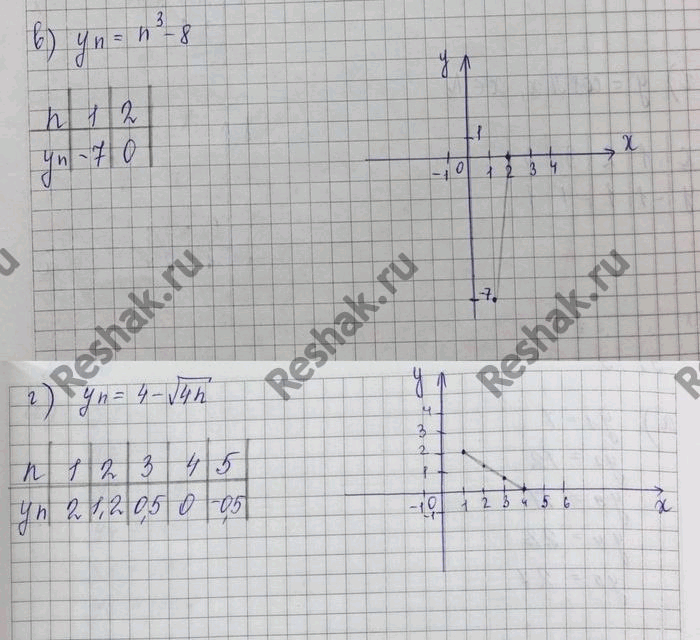 в) yn = n³ - 8
n 1 2
yn -7 0
y
1
x
-1 0 1 2 3 4
-7
Reshak.ru Reshak.ru Reshak.ru
г) yn = 4 - √4n
n 1 2 3 4 5
yn 2 1,2 0,5 0 -0,5
y
4
3
2
1
-1 0 1 2 3 4 5 6 x
-1